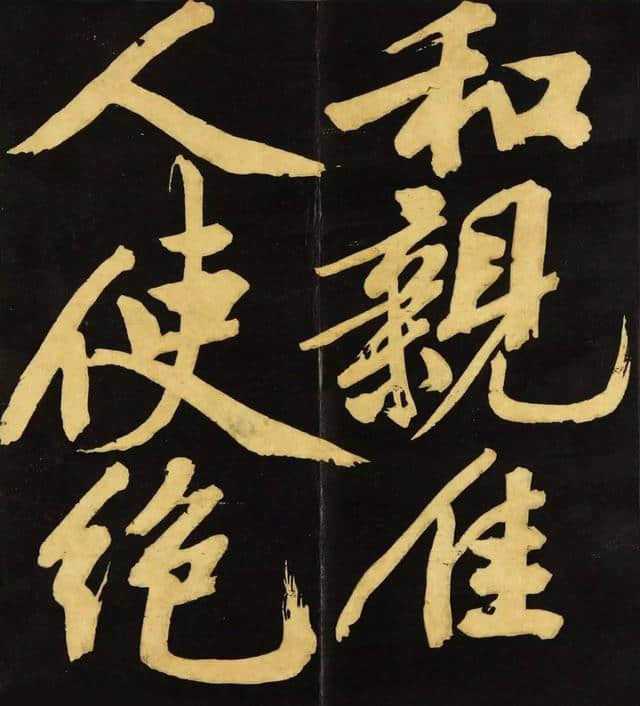 和親佳
人使絶